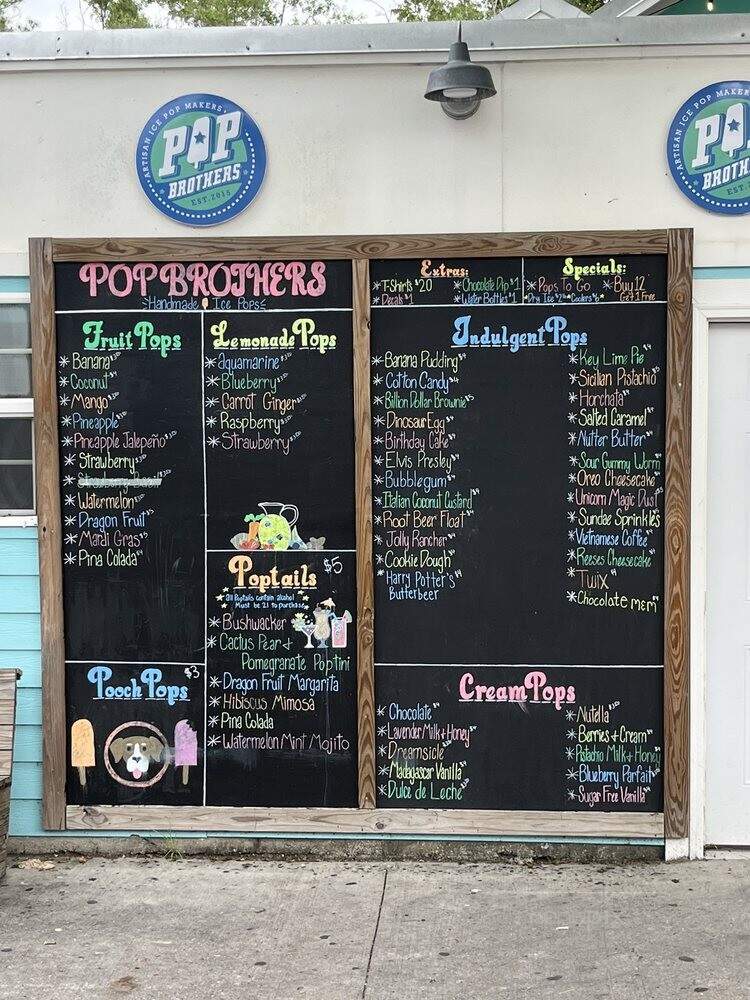 ARTISAN ICE POP MAKERS
POP
BROTHERS
EST. 2015
POP BROTHERS
Handmade Ice Pops
Fruit Pops
* Banana
* Coconut
* Mango
* Pineapple
* Pineapple Jalepeño
* Strawberry
* Watermelon
* Dragon Fruit
* Mardi Gras
* Pina Colada
Pooch Pops $3
Lemonade Pops
* Aquamarine
* Blueberry
* Carrot Ginger
* Raspberry
* Strawberry
Poptails $5
All Poptails contain alcohol
Must be 21 to purchase
* Bushwacker
* Cactus Pear +
Pomegranate Poptini
* Dragon Fruit Margarita
* Hibiscus Mimosa
* Pina Colada
* Watermelon Mint Mojito
Extras:
* T-Shirts $20
* Decals $1
* Chocolate Dip $1
* Water Bottles $1
Specials:
* Pops To Go
* Dry Ice * Coolers
* Buy 12
Get 1 Free
Indulgent Pops
* Banana Pudding
* Cotton Candy
* Billion Dollar Brownie
* Dinosaur Egg
* Birthday Cake
* Elvis Presley
* Bubblegum
* Italian Coconut Custard
* Root Beer Float
* Jolly Rancher
* Cookie Dough
* Harry Potter's
Butterbeer
* Key Lime Pie
* Sicilian Pistachio
* Horchata
* Salted Caramel
* Nutter Butter
* Sour Gummy Worm
* Oreo Cheesecake
* Unicorn Magic Dust
* Sundae Sprinkles
* Vietnamese Coffee
* Reeses Cheesecake
* Twix
* Chocolate mem
Cream Pops
* Chocolate
* Lavender Milk + Honey
* Dreamsicle
* Madagascar Vanilla
* Dulce de Leche
* Nutella
* Berries + Cream
* Pistachio Milk + Honey
* Blueberry Parfait
* Sugar Free Vanilla
ARTISAN ICE POP MAKER
PO
BROTH
EST. 201